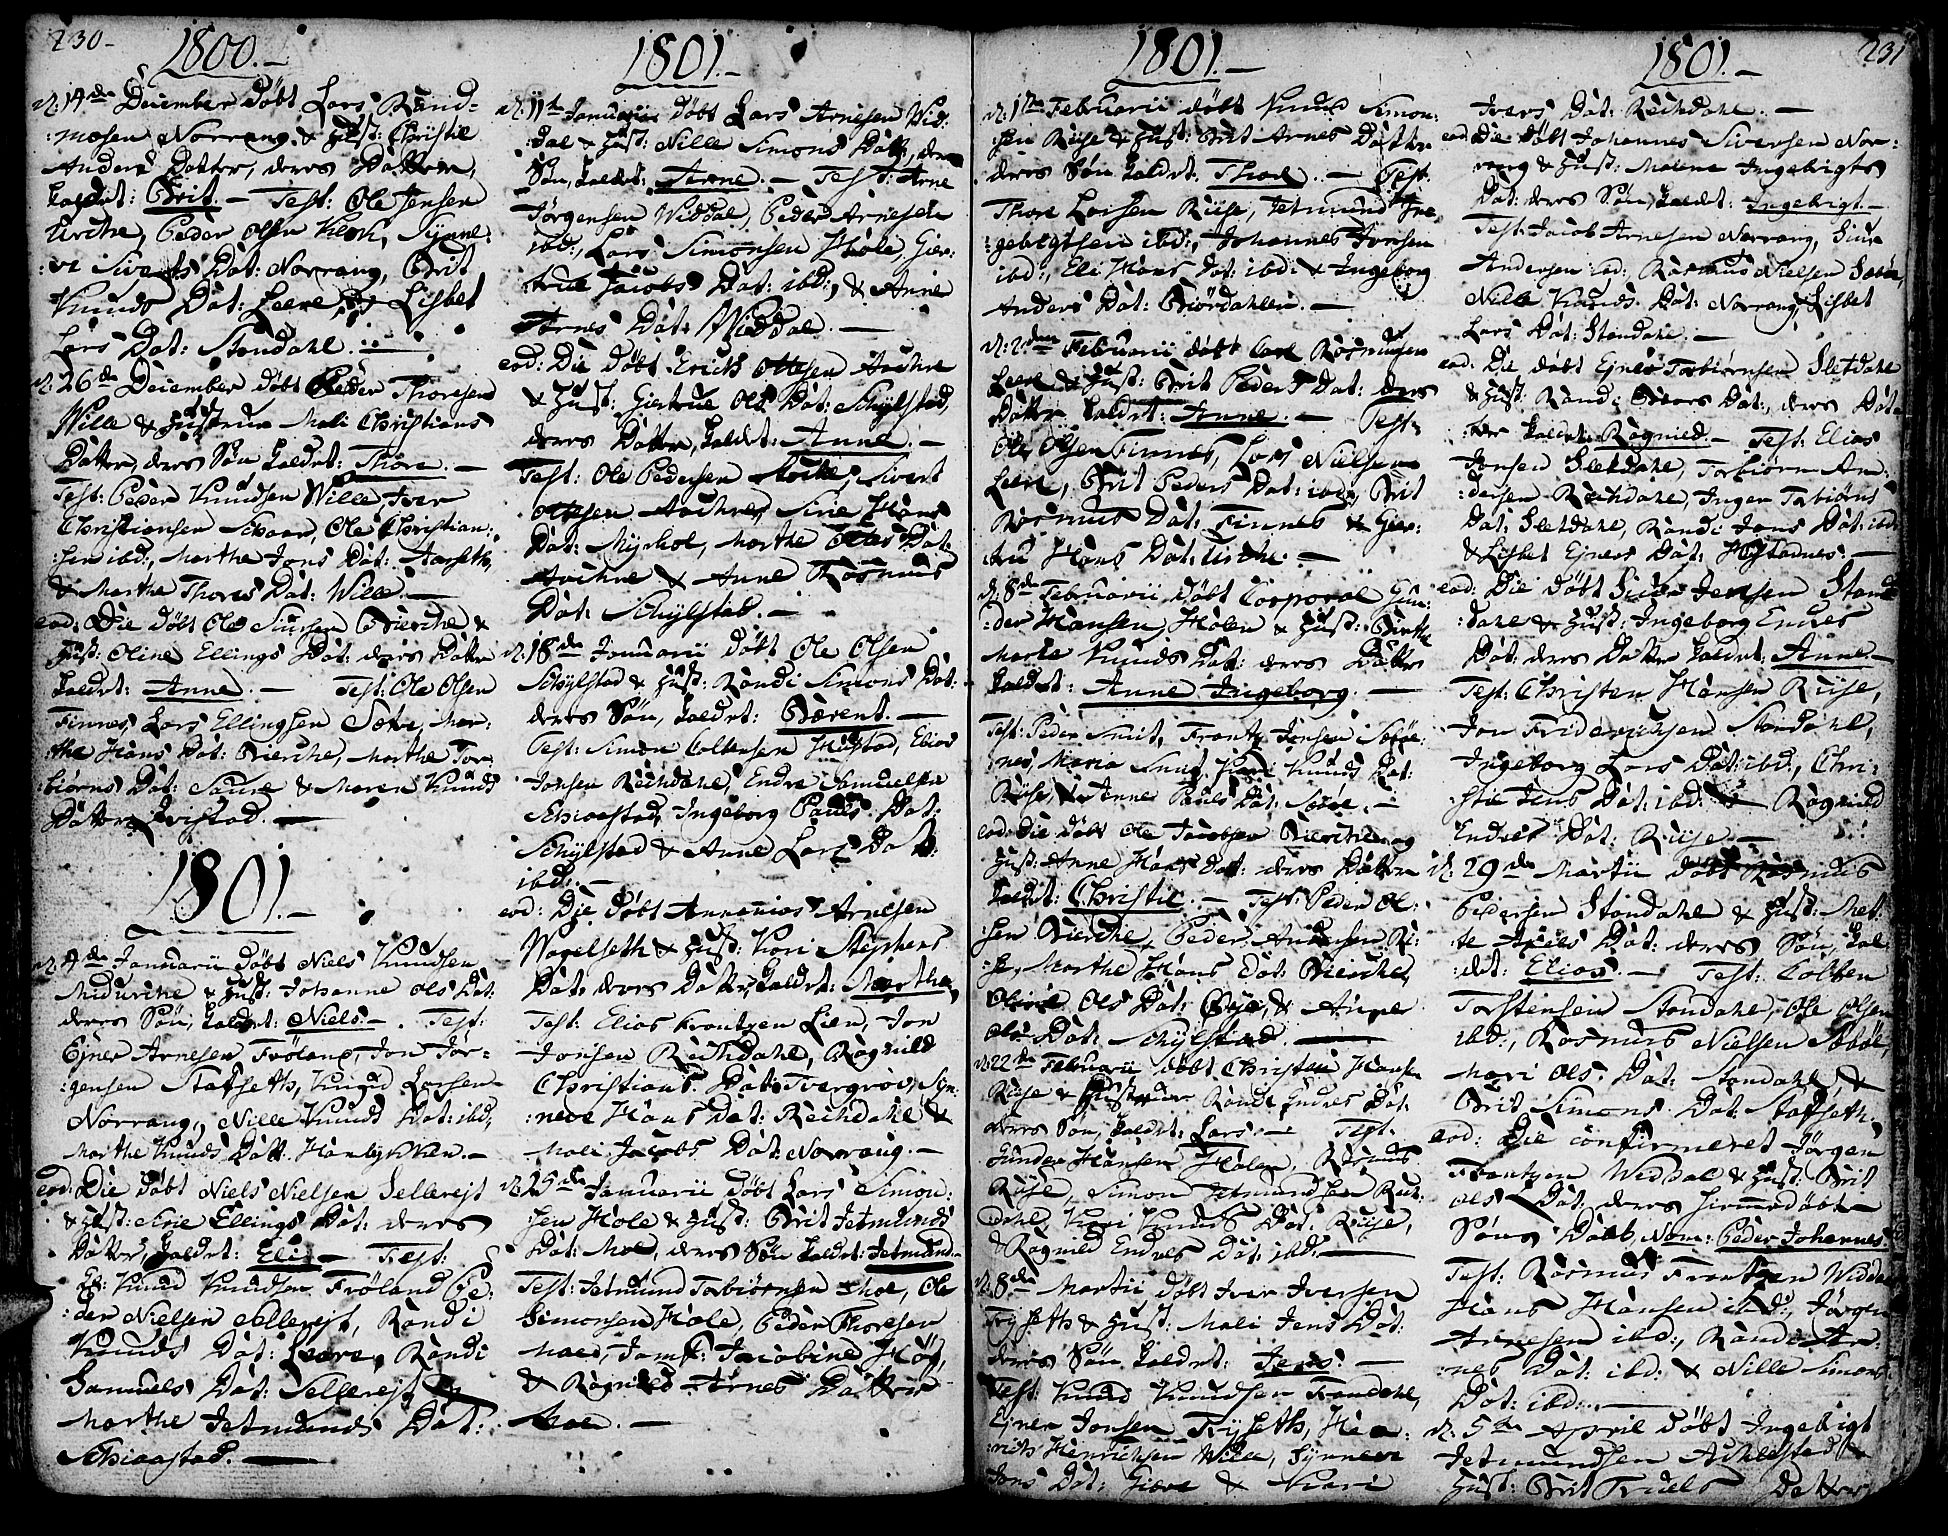 230-
1800.-
d: 14de December døbt Lars Rand-
:mosen Norrang & Hust: Christie
Anders Datter, deres Datter,
kaldet: Brit. - Test: Ole Jensen
Urche, Peder Olsen Klok, Synne-
:ve Siverts Dat: Norrang, Brit
Knuds Dat: Leere, & Lisbet
Lars Dat: Standahl.
d: 26de December døbt Peder Thoresen
Wille & Hustrue Mali Christians
Datter, deres Søn kaldet: Thore. -
Test: Peder Knudsen Wille, Iver
Christiansen Skaar, Ole Christian:
:sen ibd:, Marthe Jons Dat: Aarseth,
& Marthe Thores Dat: Wille. -
eod: Die døbt Ole Siursen Bierche &
Hust: Oline Ellings Dat: deres Datter
kaldet: Anne. - Test: Ole Olsen
Finnes, Lars Ellingsen Sætre, Mar-
:the Hans Dat: Bierche, Marthe Tor-
:biørns Dat: Saure & Maren Knuds
Datter Qvistad. -
1801.-
d: 4de Januarii døbt Niels Knudsen
Midurche & Hust: Johanne Ols Dat:
deres Søn, kaldet: Niels. - Test:
Ejner Arnesen Frøland, Jon Jør-
:gensen Statseth, Knud Larsen
Norrang, Nille Knuds Dat: ibd,
Marthe Knuds Datt. Hamlykken. -
eod: Die døbt Niels Nielsen Sellerejt
& Hust: Ellings Dat: deres
Datter, kaldet: Eli - Test:
Knud Knudsen Frøland Pe-
:der Nielsen Sellerejt, Randi
Knuds Dat: Leere, Randi
Samuels Dat: Sellerejt &
Marthe Jetmunds Dat:
Schiaastad. -
1801.-
d: 11te Januarii døbt Lars Arnesen Wid:
:dal & Hust: Nille Simons Datt, deres
Søn, kaldet: Arne. - Test: Arne
Jørgensen Widdal, Peder Arnesen
ibd:, Lars Simonsen Hole, Gier-
:true Jacobs Dat: ibd:, & Anne
Arnes Dat: Widdal. -
eod: Die døbt Erich Ottesen Auchre
& Hust: Giertrue Ols Dat: Schylstad,
deres Datter, kaldet: Anne. -
Test: Ole Pedersen, Sivert
Ottesen Auchre, Sirie Hans
Dat: Myrhol, Marthe Dat:
Auchre & Anne Rasmus
Dat: Schylstad. -
d: 18de Januarii døbt Ole Olsen
Schylstad & Hust: Randi Simons Dat:
deres Søn, kaldet: Bærent. -
Test: Simon Coltensen Hustad, Elias
Jonsen Rechdahl, Endre Samuelsen
Schiaastad, Ingeborg Pauls Dat:
Schylstad & Anne Lars Dat:
ibd: -
eod: Die døbt Annanias Arnesen
Wogelseth & Hust: Kari Stephens
Dat: deres Datter, kaldet: Marthe,
Test: Elias Frantzen Lien, Jon
Jonsen Rechdahl, Ragnild
Christians Dat: Tvergrov, Syn-
:neve Hans Dat: Rechdahl &
Mali Jacobs Dat: Norrang. -
d: 25de Januarii døbt Lars Simon-
:sen Hole & Hust: Brit Jetmunds
Dat: Moe, deres Søn kaldet: Jetmund -
Test: Jetmund Torbiørnsen Moe, Ole
Simonsen Hole, Peder Thoresen
Moe, Jomf: Jacobine Høg,
& Ragnild Arnes Datter
Moe. -
1801.-
d: 1te Februarii døbt Knud Simon-
:sen Riise & Hust: Brit Arnes Datter
deres Søn kaldet: Thore. - Test.
Thore Larsen Riise, Jetmund In-
:gebrigtsen ibd:, Johannes Jonsen
ibd:, Eli Hans Dat: ibd: & Ingeborg
Anders Dat: Biørdahlen. -
d: 2den Februarii døbt Carl Rasmusen
Leere & Hust: Brit Peders Dat: deres
Datter kaldet: Anne. - Test:
Ole Olsen Finnes, Lars Nielsen
Leere, Brit Peders Dat: ibd:, Brit
Rasmus Dat: Finnes & Gier-
:true Hans Dat: Urche. -
d: 8de Februarii døbt Corporal Gun-
:der Hansen Holen & Hust: Birthe
Marta Knuds Dat: deres Datter
kaldet: Anne Ingeborg. -
Test: Peder Smit, Frantz Jensen
:nes, Maria Smit, Kari Knuds Dat:
Riise, & Anne Pauls Dat: Sætre. -
eod: Die døbt Ole Jacobsen Bierche og
Hust: Anne Hans Dat: deres Datter
kaldet: Christie. - Test: Peder Ol-
:sen Bierche, Peder Andersen Ri-
:se, Marthe Hans Dat: Bierche,
Oline Ols Dat: & Anne
Ols Dat: Schylstad. -
d: 22de Februarii døbt Christen Hansen
Riise & Hustrue Randi Endres Dat:
deres Søn, kaldet: Lars. - Test:
Gunder Hansen Holen, Rasmus
Riise, Simon Jetmundsen Rut-
:dahl, Kari Knuds Dat: Riise,
& Ragnild Endres Dat: ibd: -
d: 8de Martii døbt Iver Iversen
Tryseth & Hust: Mali Jens Dat:
deres Søn kaldet: Jens. -
Test: Knud Knudsen Standahl,
Ejner Jonsen Tryseth, Hen-
:rich Henrichsen Wille, Synneve
Jons Dat: Giære & Kari
231
1801.-
Ivers Dat: Rechdahl. -
eod: Die døbt Johannes Siversen Nor-
:rang & Hust: Malene Ingebrigts
Dat: deres Søn, kaldet: Ingebrigt. -
Test: Jacob Arnesen Norrang, Siur
Andersen ibd: Rasmus Nielsen Sæbø,
Nille Knuds Dat: Norrang, Lisbet
Lars Dat: Standahl. -
eod: Die døbt Ejner Torbiørnsen Sletdahl
& Hust: Randi Dat:, deres Dat-
:ter kaldet Ragnild. - Test: Elias
Jonsen Sletdahl, Torbiørn An-
:dersen Rechdahl, Inger Torbiørns
Dat: Sletdahl, Randi Jons Dat: ibd:
& Lisbet Ejners Dat: Hustadnes. -
eod: Die døbt Siur Jensen Stan-
:dahl & Hust: Ingeborg Endres
Dat: deres Datter kaldet: Anne -
Test: Christen Hansen Riise,
Jon Friderichsen Standahl,
Ingeborg Lars Dat: ibd:, Chri-
:stie Jens Dat: ibd: & Ragnild
Endres Dat: Riise. -
d: 29de Martii døbt Rasmus
Pedersen Standahl & Hust: Met-
:te Niels Dat: deres Søn, kal-
:det: Elias. - Test: Colben
Torstensen Standahl, Ole Olsen
ibd:, Rasmus Nielsen Sæbøe,
Mari Ols Dat: Standahl, &
Brit Simons Dat: Statseth.
eod: Die confirmeret Jørgen
Frantzen Widdal & Hust: Brit
Ols Dat: deres hiemmedøbte
Søns Daab, Nom: Peder Johannes.
Test: Rasmus Frantzen Widdal
Hans Hansen ibd:, Jørgen
Arnesen ibd:, Randi Ar-
:nes Dat: ibd: & Nille Simons
Dat: ibd: -
d: 5te April døbt Ingebrigt
Jetmundsen Auchlestad &
Hust: Brit Truels Datter